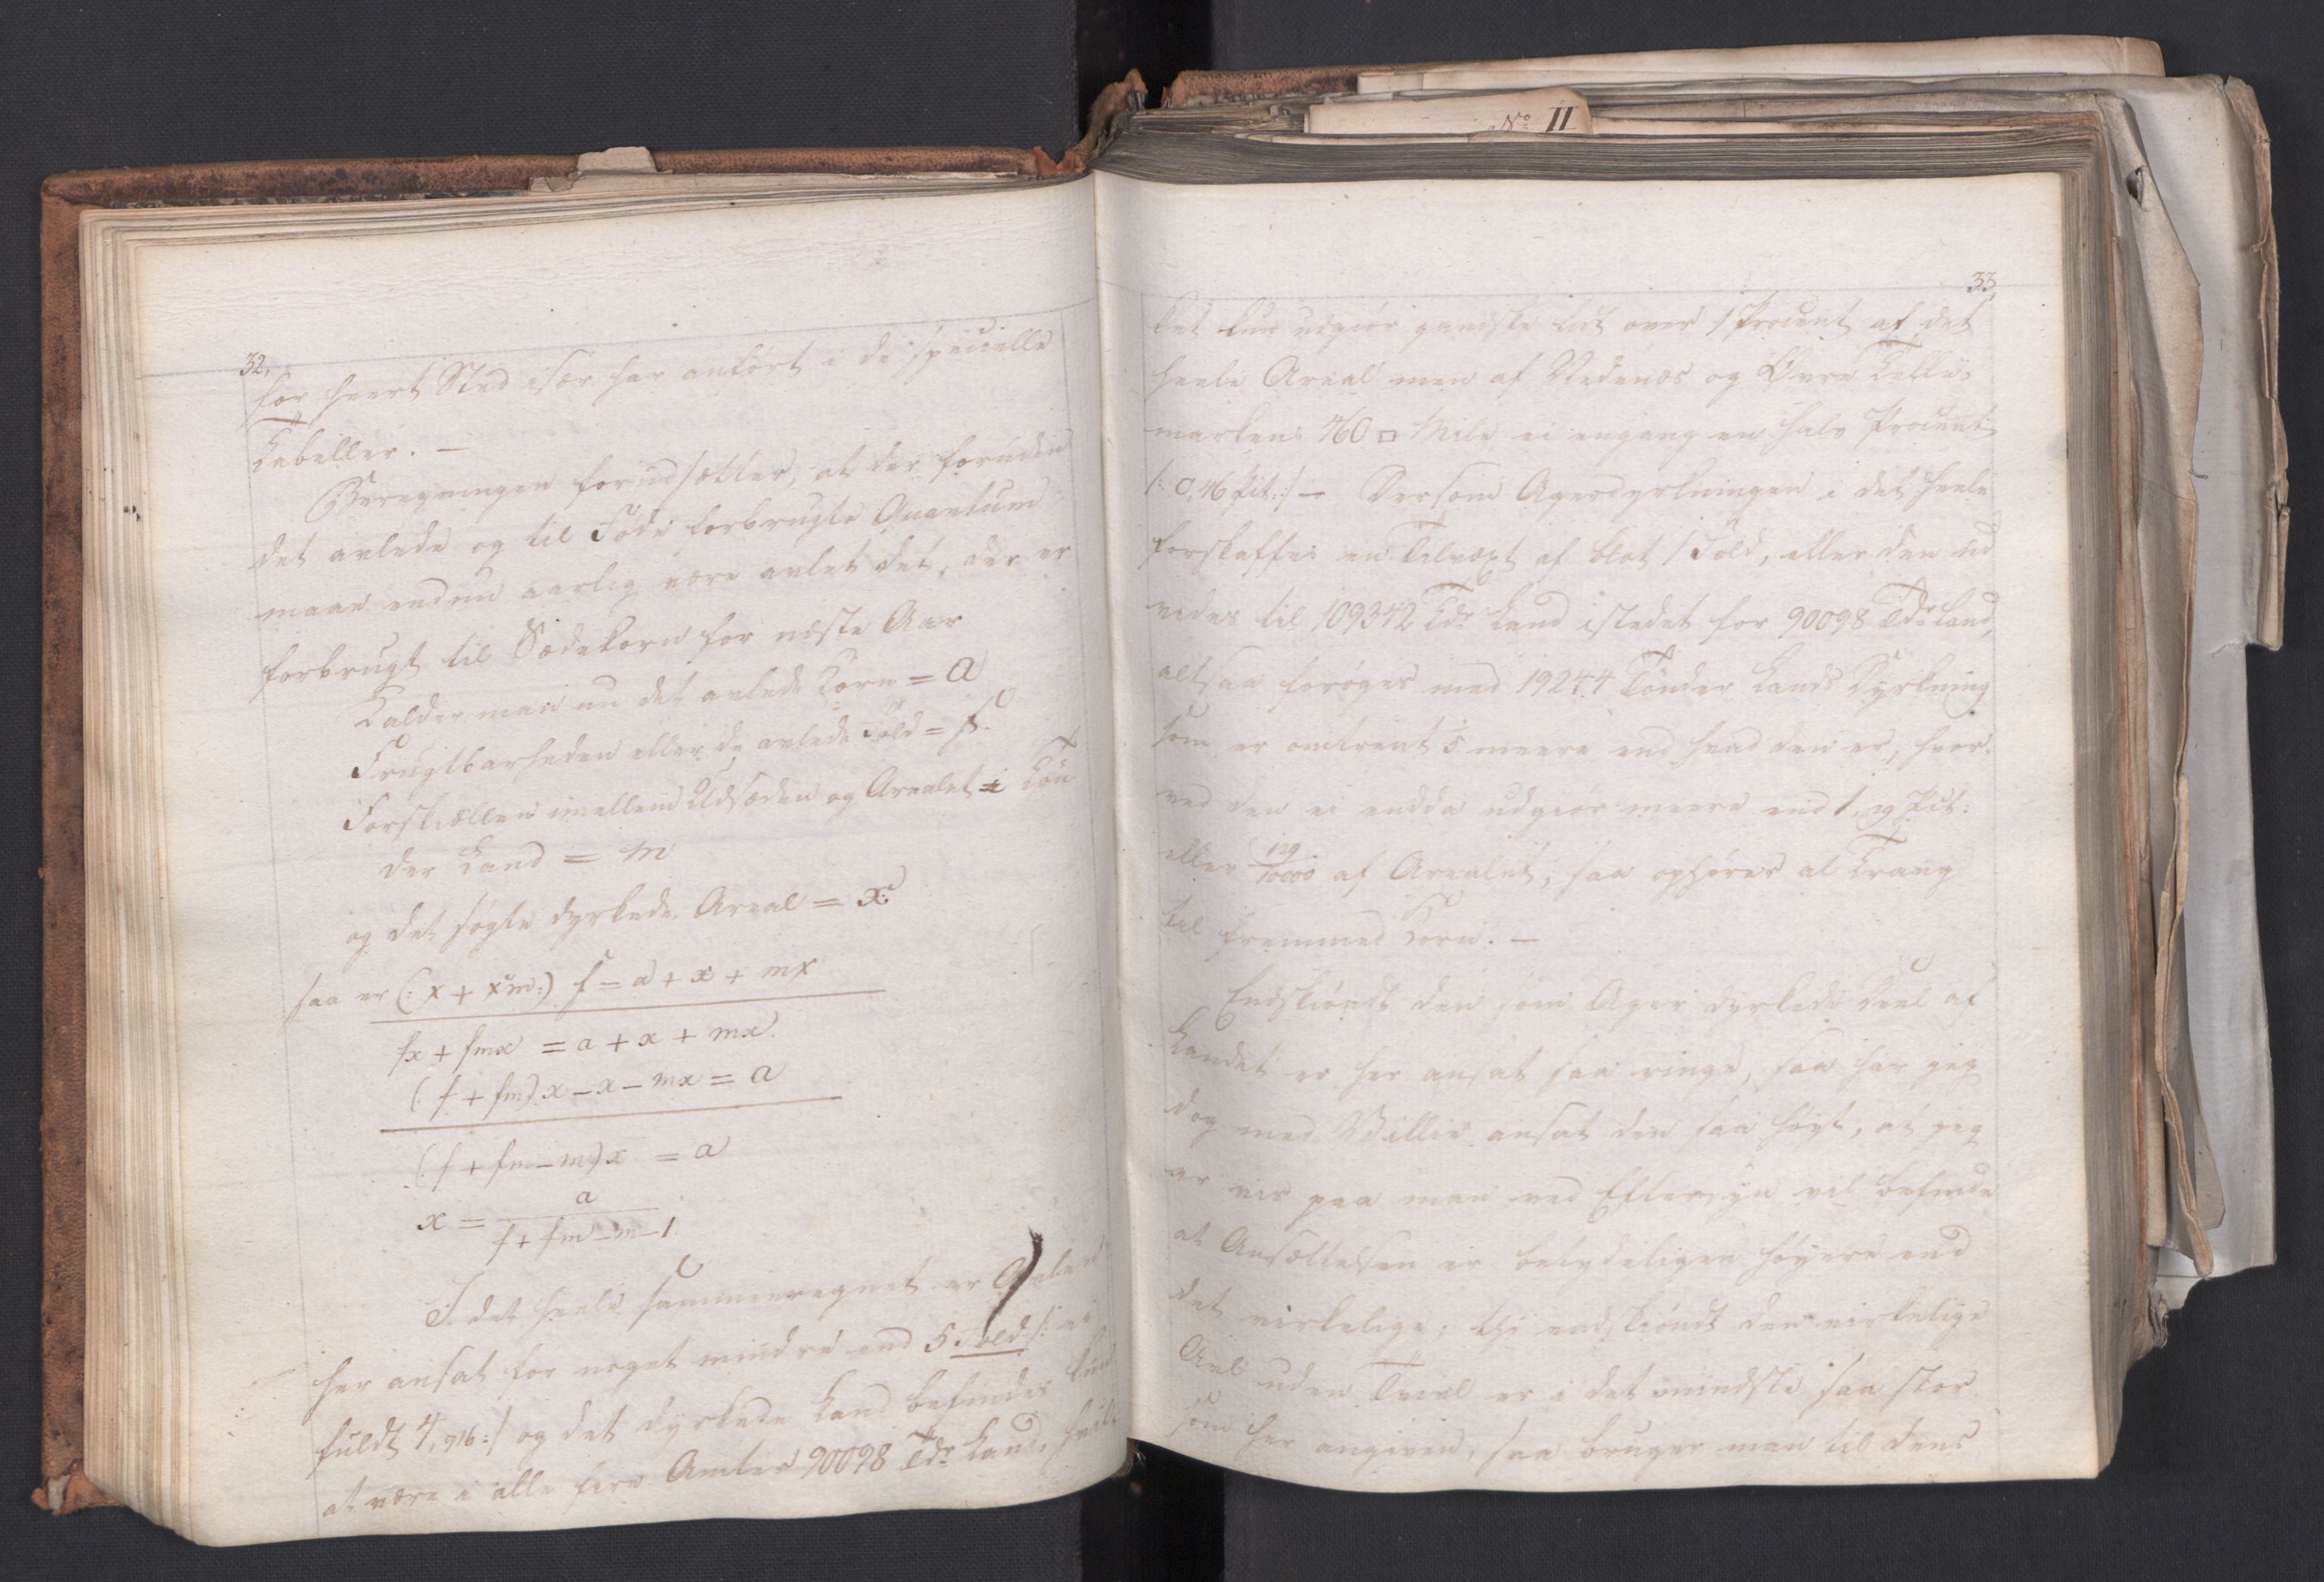 No II
32.
for hvert Sted især har anført i de specielle
Tabeller. —
Beregningen forudsætter, at der foruden
det avlede og til Føde forbrugte Quantum
maae endnu aarlig være avlet det, der er
forbrugt til Sædekorn for næste Aar
Kalder man nu det avlede Korn = a
Frugtbarheden eller de avlede Fold = f.
Forskiællen imellem Udsæden og Arealet i Tøn
der Land = m
og det søgte dyrkede Areal = x
saa er (: x + xm :) f = a + x + mx
fx + fmx = a + x + mx
(: f + fm) x - x - mx = a
(: f + fm - m) x = a
x = a / f + fm - m - 1
I det heele sammenregnet er Avlen
her ansat for noget mindre end 5 Fold /: ei
fuldt 4,916 :/ og det dyrkede Land befindes kun
at være i alle fire Amter 90098 Tdr Land, hvil
33.
ket kun udgiør gandske lidt over 1 Procent af det
heele Areal men af Nedenæs og Øvre Telle-
markens 460 □ Mile ei engang en halv Procent
/: 0,46 Pct :/ — Dersom Agerdyrkningen i det heele
forskaffes en Tilvæxt af blot 1 Fold, eller den ud
vides til 109342 Tdr Land istedet for 90098 Tdr Land,
altsaa forøges med 19244 Tønder Lands Dyrkning
som er omtrent meere end hvad den er, hvor-
ved den ei endda udgiør meere end 1,29 Pct:
eller 129/10000 af Arealet, saa ophører al Trang
til fremmed Korn. —
Endskiøndt den som Ager dyrkede Deel af
Landet er her ansat saa ringe, saa har jeg
dog med Villie ansat den saa høyt, at jeg
er vis paa man ved Eftersyn vil befinde
at Ansættelsen er betydeligen høyere end
det virkelige; thi endskiøndt den virkelige
Avl uden Tvivl er i det mindste saa stor
som her angiven, saa bruger man til dens